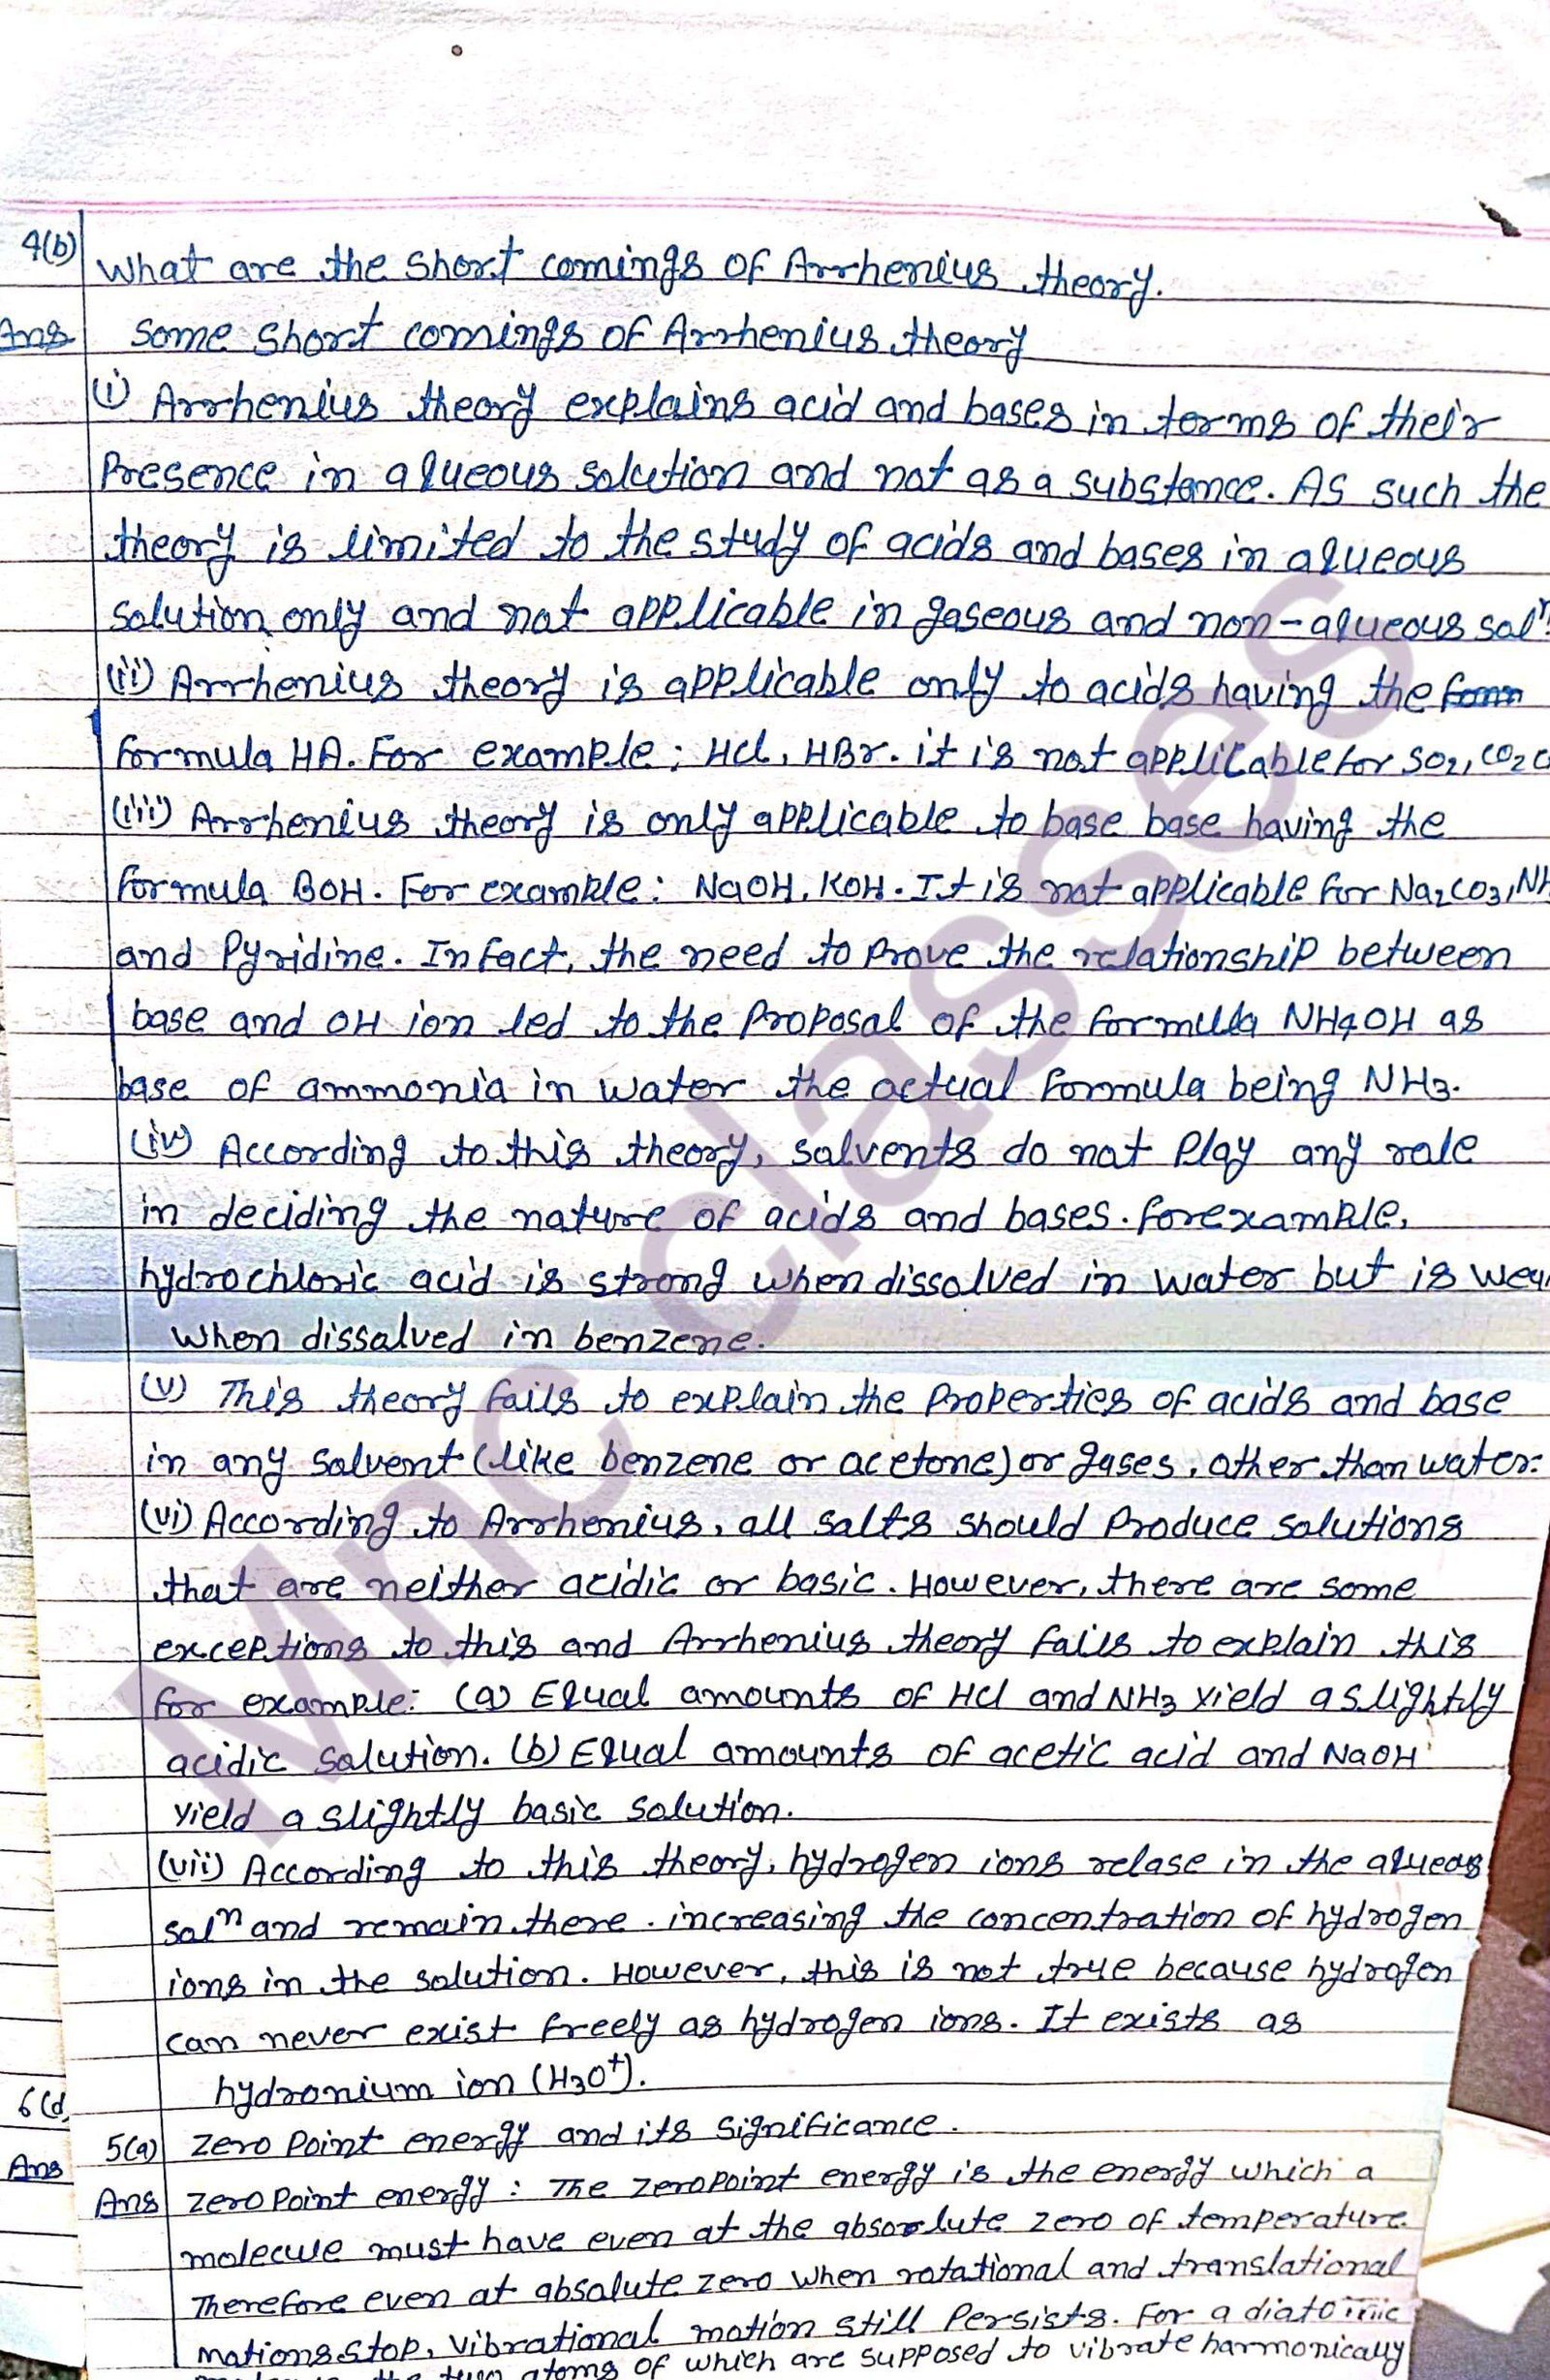 4(b) What are the short comings of Arrhenius theory.
Ans some short comings of Arrhenius theory
(i) Arrhenius theory explains acid and bases in terms of their
Presence in aqueous solution and not as a substance. As such the
theory is limited to the study of acids and bases in aqueous
solution only and not applicable in gaseous and non-aqueous solⁿ.
(ii) Arrhenius theory is applicable only to acids having the
formula HA. For example; HCl, HBr. it is not applicable for SO2, CO2
(iii) Arrhenius theory is only applicable to base base having the
formula BOH. For example: NaOH, KOH. It is not applicable for Na2CO3, NH
and Pyridine. In fact, the need to prove the relationship between
base and OH ion led to the proposal of the formula NH4OH as
base of ammonia in water the actual formula being NH3.
(iv) According to this theory, solvents do not play any role
in deciding the nature of acids and bases. for example,
hydrochloric acid is strong when dissolved in water but is
when dissolved in benzene.
(v) This theory fails to explain the properties of acids and base
in any solvent (like benzene or acetone) or gases, other than water.
(vi) According to Arrhenius, all salts should produce solutions
that are neither acidic or basic. However, there are some
exceptions to this and Arrhenius theory fails to explain this
for example: (a) Equal amounts of HCl and NH3 yield a slightly
acidic solution. (b) Equal amounts of acetic acid and NaOH
yield a slightly basic solution.
(vii) According to this theory, hydrogen ions relase in the aqueous
solⁿ and remain there. increasing the concentration of hydrogen
ions in the solution. However, this is not true because hydrogen
can never exist freely as hydrogen ions. It exists as
hydronium ion (H3O⁺).
6(d)
5(a) Zero Point energy and its significance.
Ans
Ans Zero Point energy : The zero point energy is the energy which a
molecule must have even at the absolute zero of temperature.
Therefore even at absolute zero when rotational and translational
motions stop, vibrational motion still Persists. For a diatomic
the two atoms of which are supposed to vibrate harmonically
Mnc classes